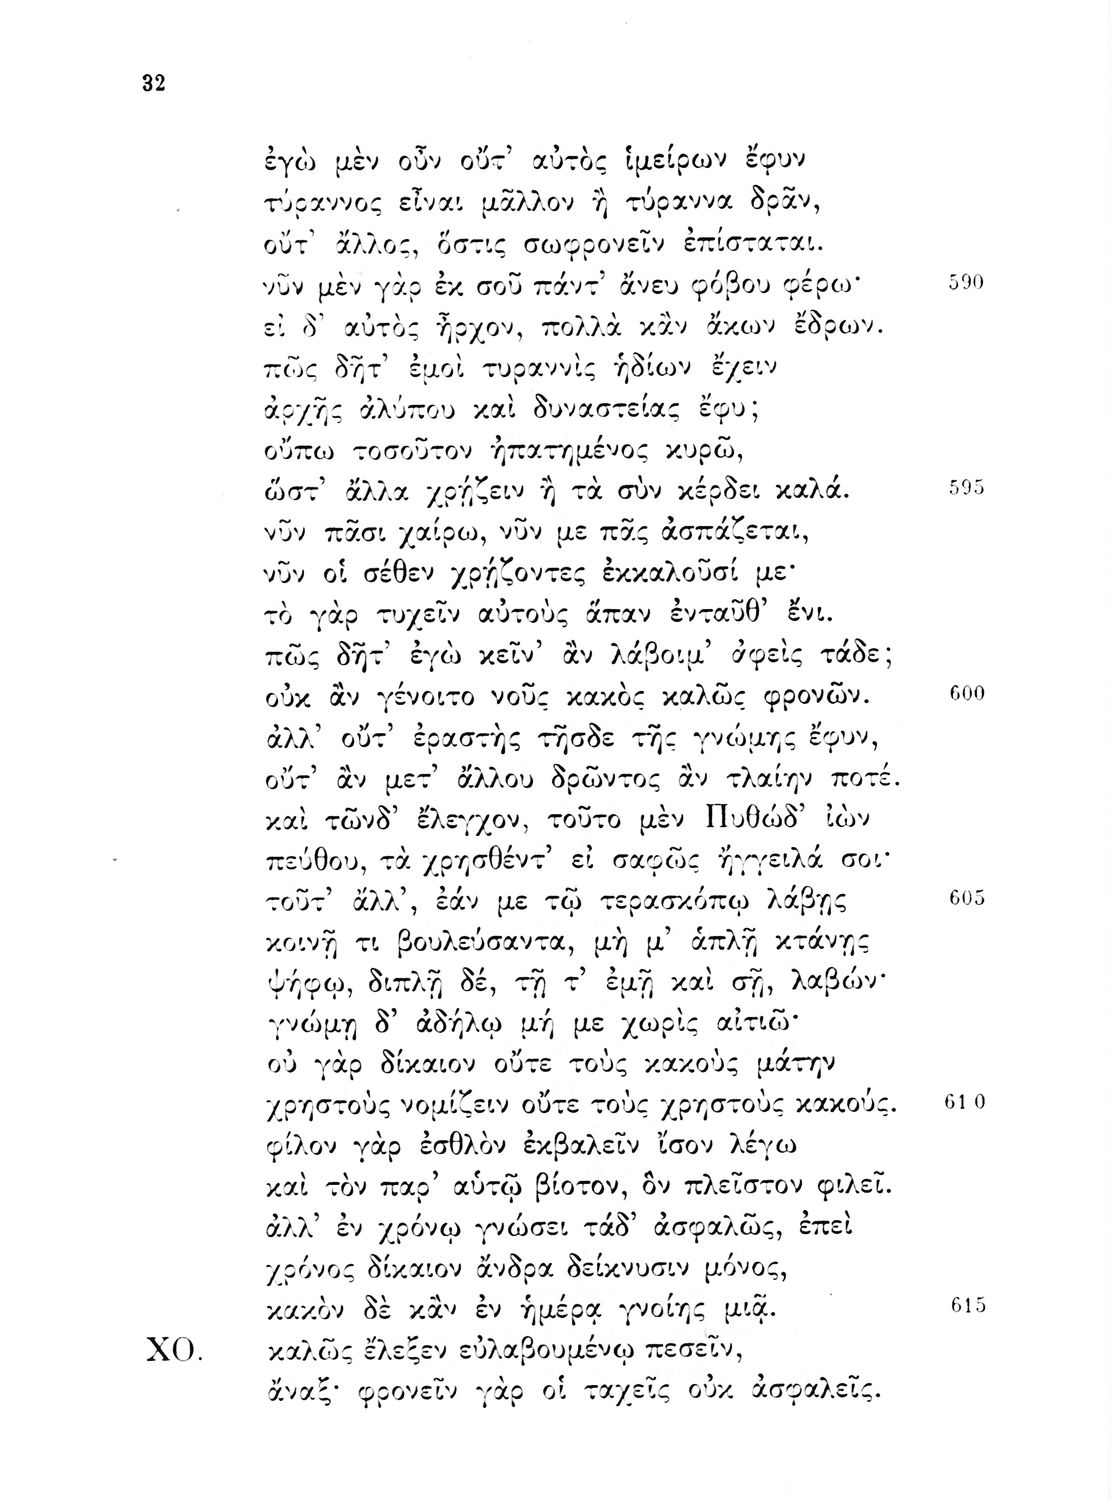 32
ἐγὼ μὲν οὖν οὔτ’ αὐτὸς ἱμείρων ἔφυν
τύραννος εἶναι μᾶλλον ἢ τύραννα δρᾶν,
οὔτ’ ἄλλος, ὅστις σωφρονεῖν ἐπίσταται.
νῦν μὲν γὰρ ἐκ σοῦ πάντ’ ἄνευ φόβου φέρω· 590
εἰ δ’ αὐτὸς ἦρχον, πολλὰ κἂν ἄκων ἔδρων.
πῶς δῆτ’ ἐμοὶ τυραννὶς ἡδίων ἔχειν
ἀρχῆς ἀλύπου καὶ δυναστείας ἔφυ;
οὔπω τοσοῦτον ἠπατημένος κυρῶ,
ὥστ’ ἄλλα χρῄζειν ἢ τὰ σὺν κέρδει καλά. 595
νῦν πᾶσι χαίρω, νῦν με πᾶς ἀσπάζεται,
νῦν οἱ σέθεν χρῄζοντες ἐκκαλοῦσί με·
τὸ γὰρ τυχεῖν αὐτοὺς ἅπαν ἐνταῦθ’ ἔνι.
πῶς δῆτ’ ἐγὼ κεῖν’ ἂν λάβοιμ’ ἀφεὶς τάδε;
οὐκ ἂν γένοιτο νοῦς κακὸς καλῶς φρονῶν. 600
ἀλλ’ οὔτ’ ἐραστὴς τῆσδε τῆς γνώμης ἔφυν,
οὔτ’ ἂν μετ’ ἄλλου δρῶντος ἂν τλαίην ποτέ.
καὶ τῶνδ’ ἔλεγχον, τοῦτο μὲν Πυθώδ’ ἰὼν
πεύθου, τὰ χρησθέντ’ εἰ σαφῶς ἤγγειλά σοι·
τοῦτ’ ἄλλ’, ἐάν με τῷ τερασκόπῳ λάβῃς 605
κοινῇ τι βουλεύσαντα, μὴ μ’ ἁπλῇ κτάνῃς
ψήφῳ, διπλῇ δέ, τῇ τ’ ἐμῇ καὶ σῇ, λαβών·
γνώμῃ δ’ ἀδήλῳ μή με χωρὶς αἰτιῶ·
οὐ γὰρ δίκαιον οὔτε τοὺς κακοὺς μάτην
χρηστοὺς νομίζειν οὔτε τοὺς χρηστοὺς κακούς. 610
φίλον γὰρ ἐσθλὸν ἐκβαλεῖν ἴσον λέγω
καὶ τὸν παρ’ αὑτῷ βίοτον, ὃν πλεῖστον φιλεῖ.
ἀλλ’ ἐν χρόνῳ γνώσει τάδ’ ἀσφαλῶς, ἐπεὶ
χρόνος δίκαιον ἄνδρα δείκνυσιν μόνος,
κακὸν δὲ κἂν ἐν ἡμέρᾳ γνοίης μιᾷ. 615
ΧΟ. καλῶς ἔλεξεν εὐλαβουμένῳ πεσεῖν,
ἄναξ· φρονεῖν γὰρ οἱ ταχεῖς οὐκ ἀσφαλεῖς.